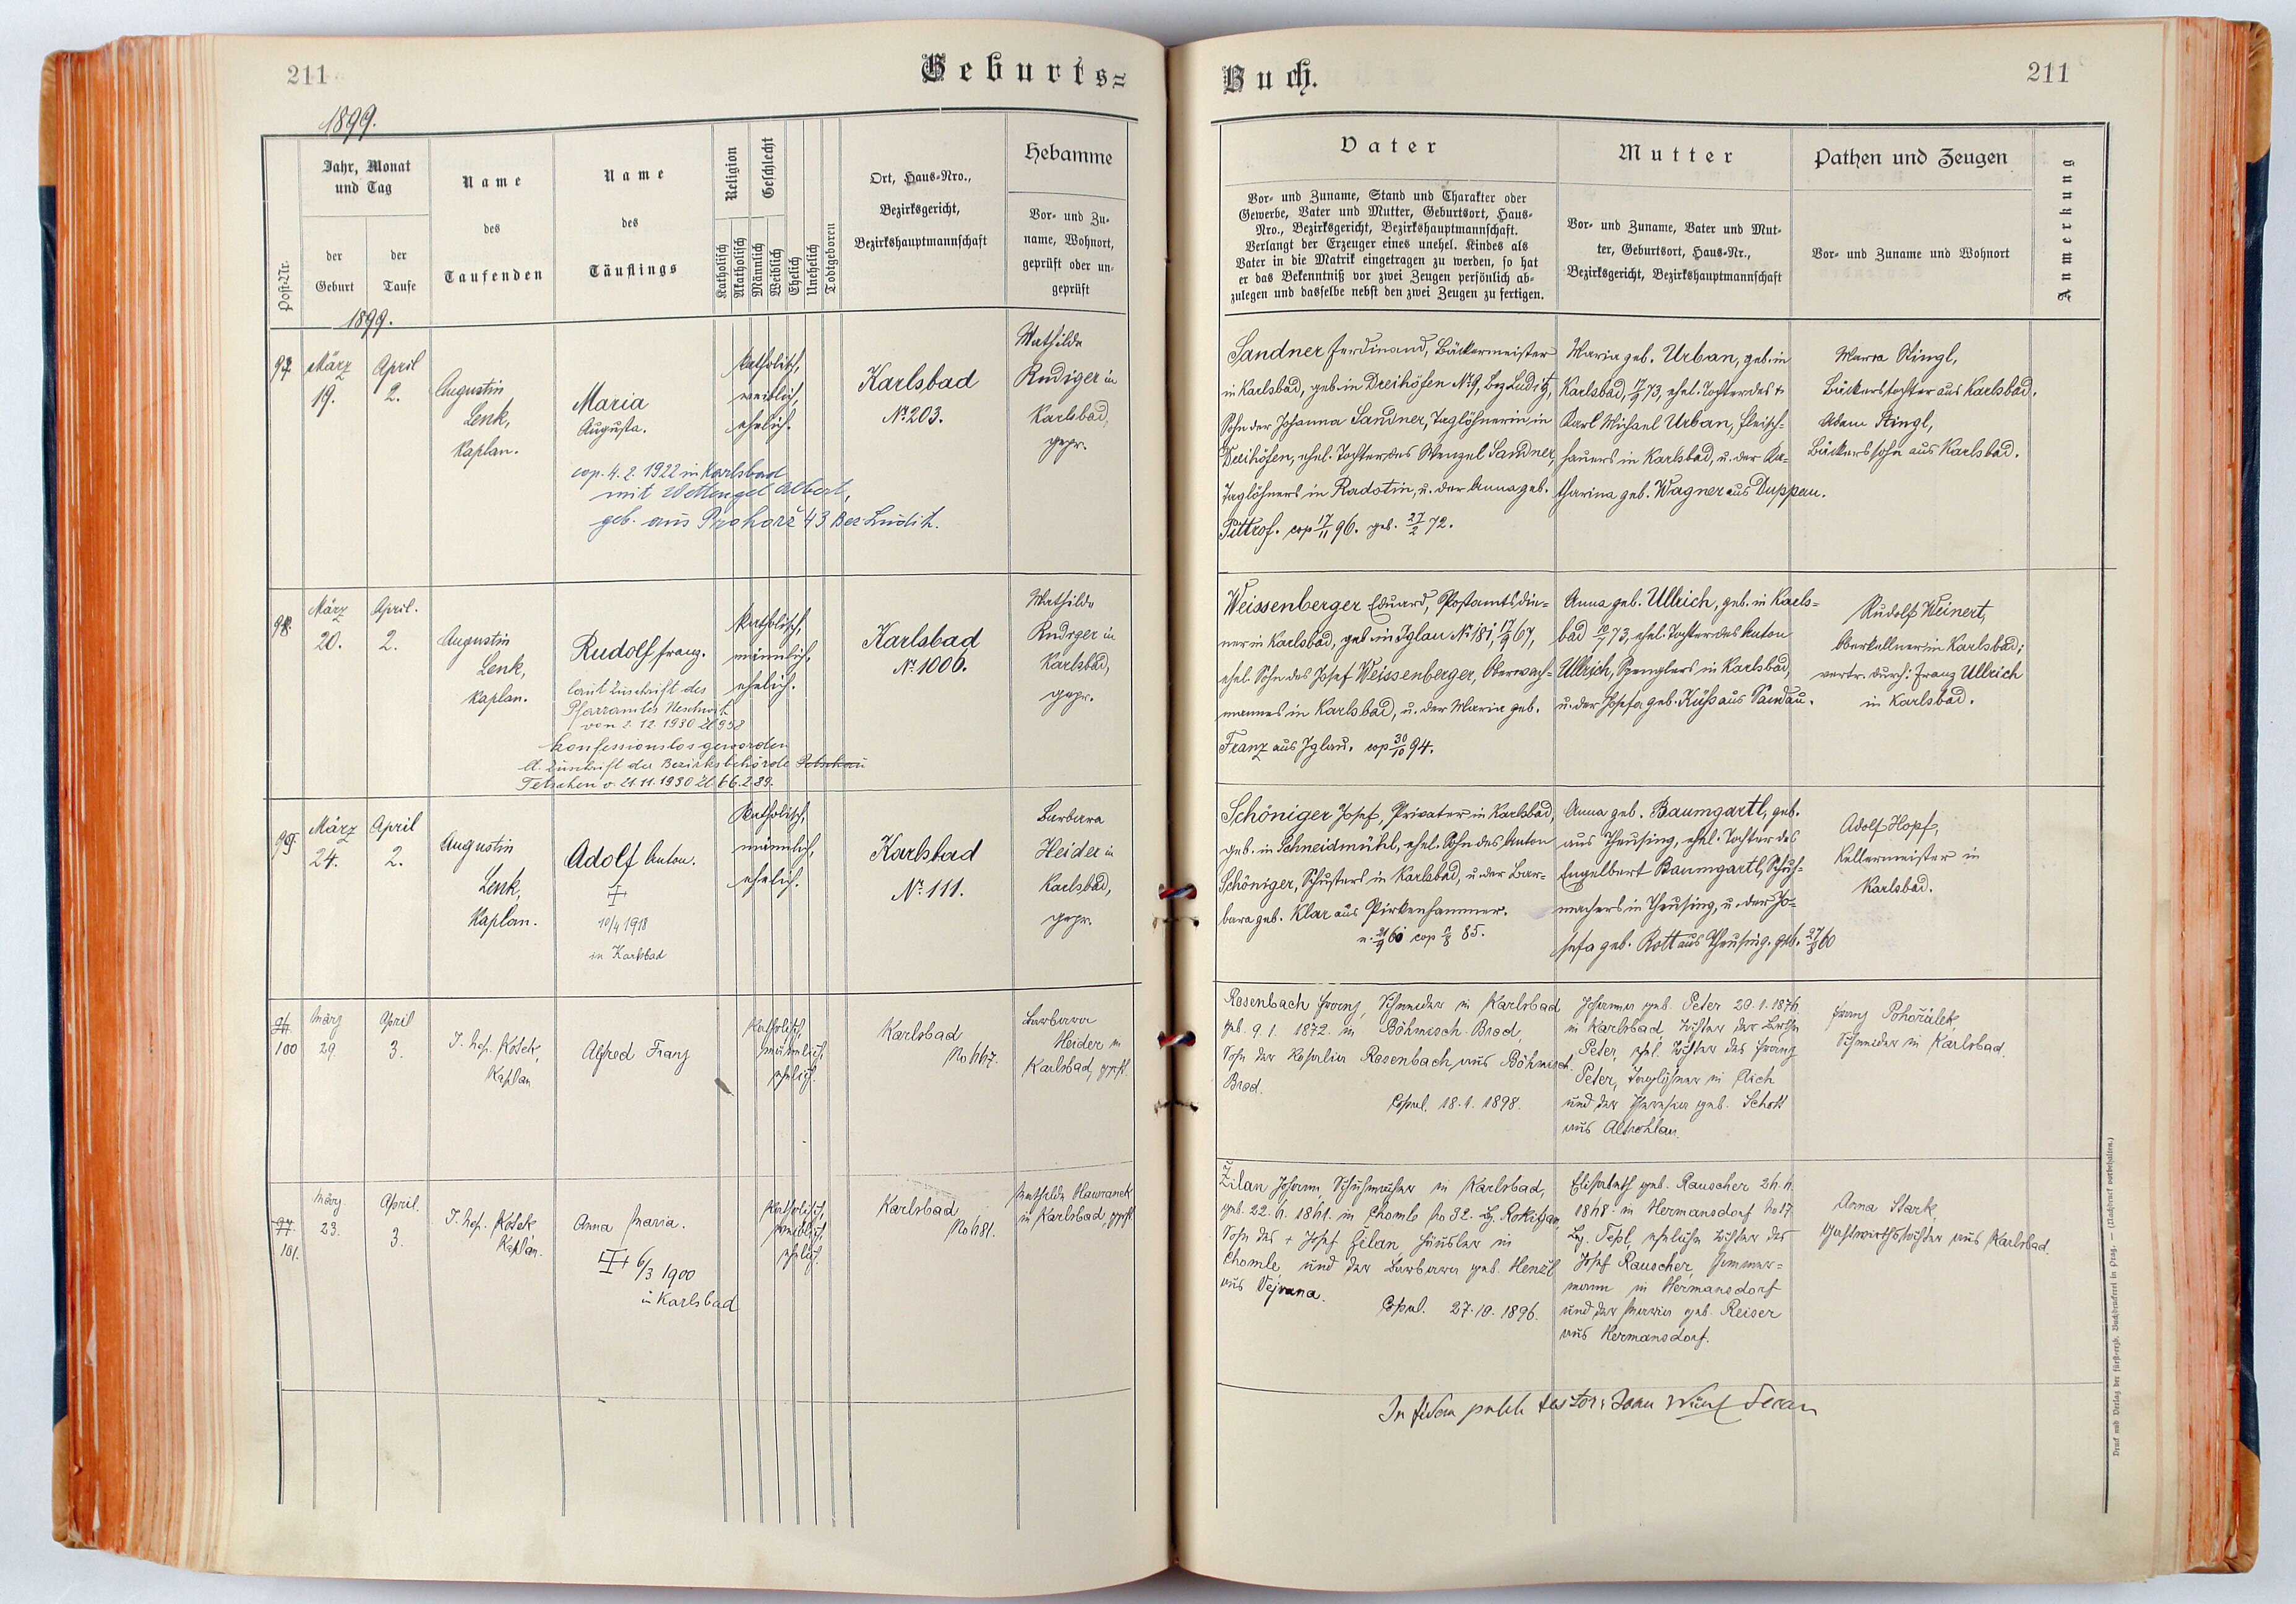 211
Geburts=
1899.
Post-Nr.
Jahr, Monat
und Tag
der
Geburt
der
Taufe
Name
des
Taufenden
Name
des
Täuflings
Religion
Katholisch
Akatholisch
Geschlecht
Männlich
Weiblich
Ehelich
Unehelich
Todtgeboren
Ort, Haus-Nro.,
Bezirksgericht,
Bezirkshauptmannschaft
Hebamme
Vor- und Zu-
name, Wohnort,
geprüft oder un-
geprüft
1899.
97.
März
19.
April
2.
Augustin
Lenk,
Kaplan.
Maria
Augusta.
cop. 4. 2. 1922 in Karlsbad
mit Wettengel Albert,
geb. aus Prohorž 43 Bez Luditz.
katholisch,
weiblich,
ehelich.
Karlsbad
No. 203.
Mathilde
Rudiger in
Karlsbad,
gepr.
98.
März
20.
April.
2.
Augustin
Lenk,
Kaplan.
Rudolf Franz.
laut Zuschrift des
Pfarramtes
von 2. 12. 1930 Zl 958
konfessionslos geworden
lt. Zuschrift der Bezirksbehörde
Tetschen v. 21. 11. 1930 Zl 66.289.
katholisch,
männlich,
ehelich.
Karlsbad
No. 1006.
Mathilde
Rudiger in
Karlsbad,
gepr.
99.
März
24.
April
2.
Augustin
Lenk,
Kaplan.
Adolf Anton.
10/4 1918
in Karlsbad
katholisch,
männlich,
ehelich.
Karlsbad
No. 111.
Barbara
Heider in
Karlsbad,
gepr.
100
März
29.
April
3.
Kosek,
Kaplan
Alfred Franz
katholisch
männlich
ehelich.
Karlsbad
No 667.
Barbara
Heider in
Karlsbad, gepft.
97
101.
März
23.
April.
3.
Kosek
Kaplan.
Anna Maria.
6/3 1900
in Karlsbad
katholisch,
weiblich,
ehelich.
Karlsbad
No 681.
Mathilde Hawranek
in Karlsbad, gepft.
Buch.
211
Vater
Vor- und Zuname, Stand und Charakter oder
Gewerbe, Vater und Mutter, Geburtsort, Haus-
Nro., Bezirksgericht, Bezirkshauptmannschaft.
Verlangt der Erzeuger eines unehel. Kindes als
Vater in die Matrik eingetragen zu werden, so hat
er das Bekenntniß vor zwei Zeugen persönlich ab-
zulegen und dasselbe nebst den zwei Zeugen zu fertigen.
Mutter
Vor- und Zuname, Vater und Mut-
ter, Geburtsort, Haus-Nr.,
Bezirksgericht, Bezirkshauptmannschaft
Pathen und Zeugen
Vor- und Zuname und Wohnort
Anmerkung
Sandner Ferdinand, Bäckermeister
in Karlsbad, geb. in Dreihöfen No. 9, bez. Luditz,
Sohn der Johanna Sandner, Taglöhnerin in
Dreihöfen, ehel. Tochter des Wenzel Sandner,
Taglöhners in Radotin, u. der Anna geb.
Pittrof. cop 17/11 96. geb. 27/2 72.
Maria geb. Urban, geb. in
Karlsbad, 73, ehel. Tochter des †
Karl Michael Urban, Fleisch-
hauers in Karlsbad, u. der Ka-
tharina geb. Wagner aus Duppau.
Maria Stingl,
Bäckerstochter aus Karlsbad.
Adam Stingl,
Bäckerssohn aus Karlsbad.
Weissenberger Eduard, Postamtsdie-
ner in Karlsbad, geb. in Iglau No. 181, 67,
ehel. Sohn des Josef Weissenberger, Oberwach-
mannes in Karlsbad, u. der Maria geb.
Franz aus Iglau. cop 30/10 94.
Anna geb. Ullrich, geb. in Karls-
bad 73, ehel. Tochter des Anton
Ullrich, Spenglers in Karlsbad,
u. der Josefa geb. Küß aus Sandau.
Rudolf Weinert,
Oberkellner in Karlsbad;
vertr. durch: Franz Ullrich
in Karlsbad.
Schöniger Josef, Privater in Karlsbad,
geb. in Schneidmühl, ehel. Sohn des Anton
Schöniger, Schusters in Karlsbad, u. der Bar-
bara geb. Klar aus Pirkenhammer.
60 cop 85.
Anna geb. Baumgartl, geb.
aus Theusing, ehel. Tochter des
Engelbert Baumgartl, Schuh-
machers in Theusing, u. der Jo-
sefa geb. Rott aus Theusing. geb. 27/8 60
Adolf Hopf,
Kellermeister in
Karlsbad.
Rosenbach Franz, Schneider in Karlsbad
geb. 9. 1. 1872 in Böhmisch-Brod,
Sohn der Rosalia Rosenbach aus Böhmisch
Brod.
Copul. 18. 1. 1898.
Johanna geb. Peter 20. 1. 1876
in Karlsbad Tochter der Bertha
Peter, ehel. Tochter des Franz
Peter, Taglöhner in Aich
und der Theresia geb. Schott
aus Altrohlau.
Franz Pohořálek,
Schneider in Karlsbad.
Žilan Johann, Schuhmacher in Karlsbad,
geb. 22. 6. 1861. in Chomle No 32. Bz. Rokitzan,
Sohn des † Josef Žilan, Häusler in
Chomle und der Barbara geb. Henzl
aus Vejvana.
Copul. 27. 10. 1896.
Elisabeth geb. Rauscher 26. 6.
1868 in Hermansdorf No 17
Bz. Tepl, eheliche Tochter des
Josef Rauscher, Zimmer-
mann in Hermansdorf
und der Maria geb. Reiser
aus Hermansdorf.
Anna Stark,
Gastwirthstochter aus Karlsbad.
In fidem
Druck und Verlag der fürst-erzb. Buchdruckerei in Prag. — (Nachdruck vorbehalten.)